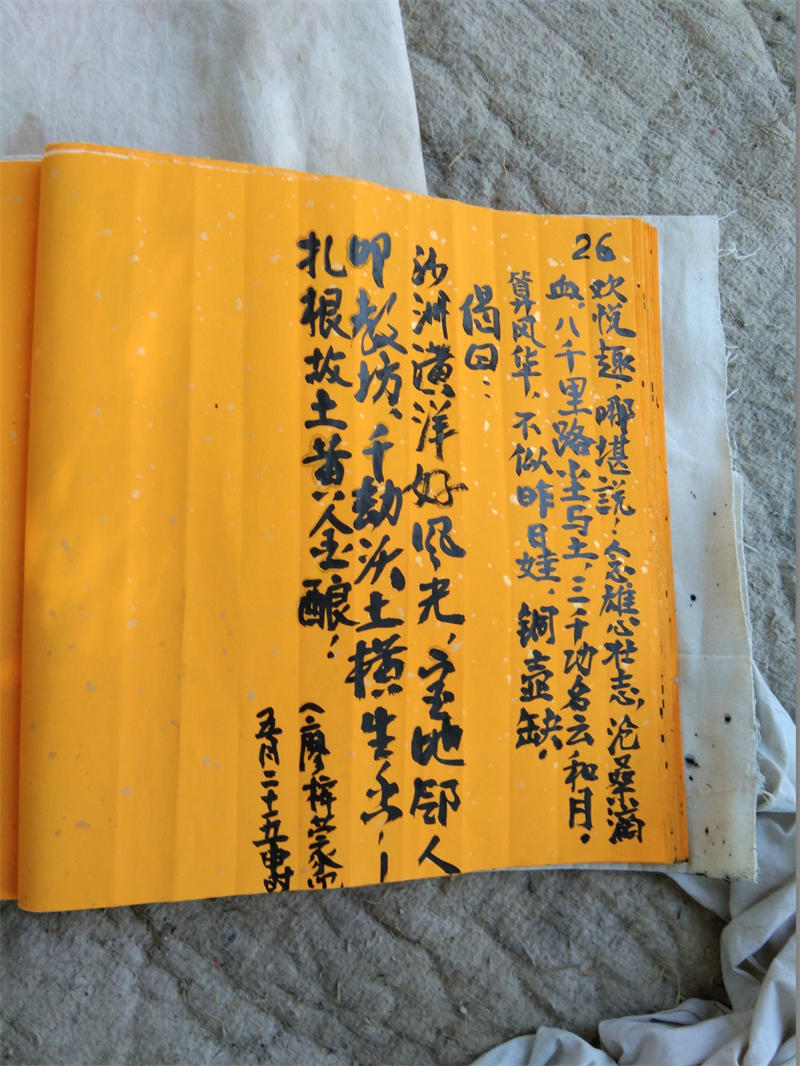 26
欢悦趣,哪堪説,念雄心壮志,沧桑滴
血。八千里路尘与土,三千功名云和月。
算风华,不似昨日娃,铜壶缺。
偈曰:
沙洲潢洋好风光,宝地邻人
叩教坊、千劫沃土横生香!
扎根故土黄金酿!
(廖梓
五月二十五申时